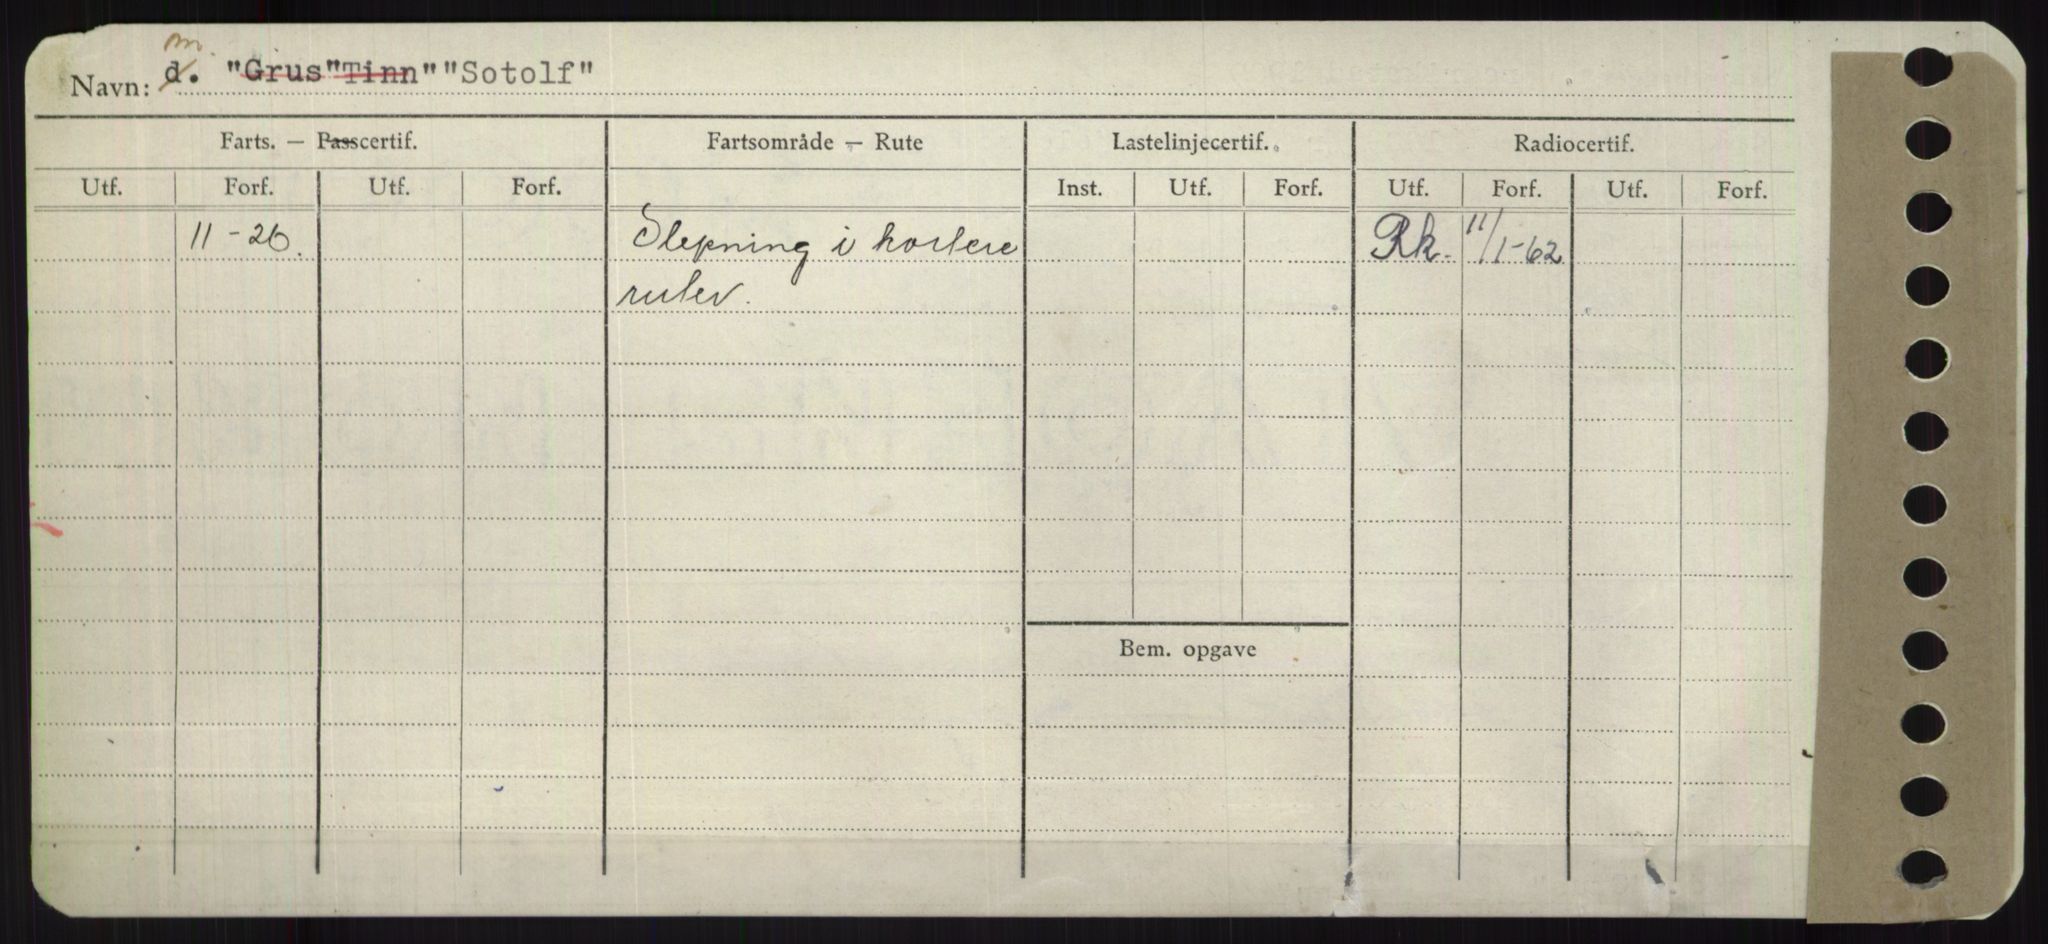 m.
Navn: d. "Grus" "Tinn" "Sotolf"
Farts. — Passcertif. Fartsområde — Rute Lastelinjecertif. Radiocertif.
Utf. Forf. Utf. Forf. Inst. Utf. Forf. Utf. Forf. Utf. Forf.
11-26. Slepning i kortere Rk. 11/1-62
ruter.
Bem. opgave